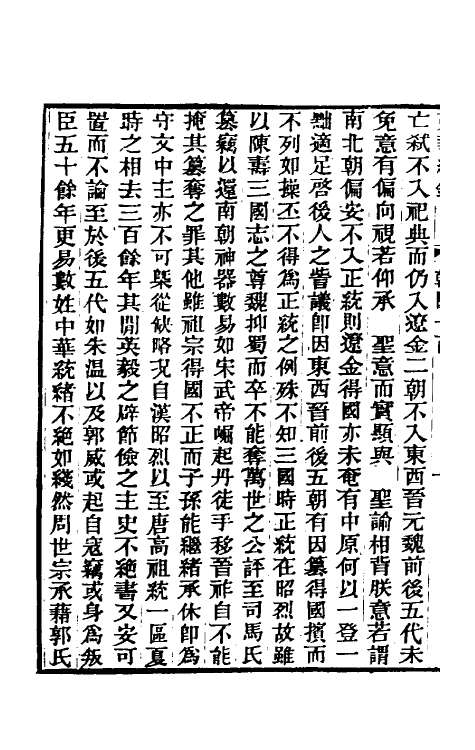 亡弒不入祀典而仍入遼金二朝不入東西晉元魏前後五代未
免意有偏向視若仰承　聖意而實顯與　聖諭相背朕意若謂
南北朝偏安不入正統則遼金得國亦未奄有中原何以一登一
黜適足啓後人之訾議卽因東西晉前後五朝有因纂得國擯而
不列如操丕不得爲正統之例殊不知三國時正統在昭烈故雖
以陳壽三國志之尊魏抑蜀而卒不能奪萬世之公評至司馬氏
篡竊以還南朝神器數易如宋武帝崛起丹徒手移晉祚自不能
掩其篡奪之罪其他雖祖宗得國不正而子孫能繼緒承休卽爲
守文中主亦不可槩從缺略况自漢昭烈以至唐高祖統一區夏
時之相去三百餘年其閒英毅之辟節儉之主史不絕書又安可
置而不論至於後五代如朱温以及郭威或起自寇竊或身爲叛
臣五十餘年更易數姓中華統緒不絕如綫然周世宗承藉郭氏